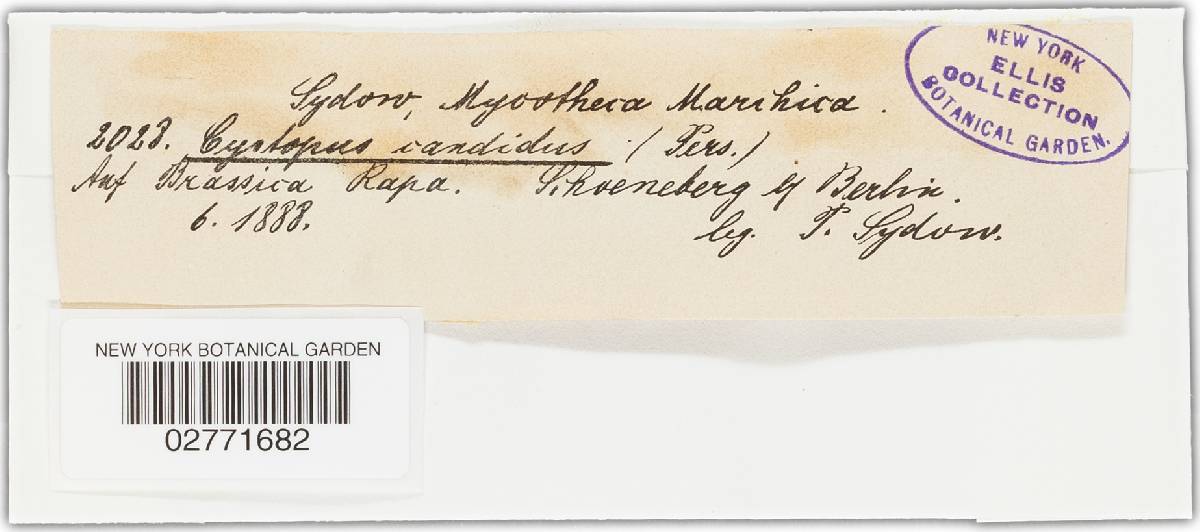 Sydow, Mycotheca Marchica.
2028. Cystopus candidus (Pers.)
Auf Brassica Rapa. Schoeneberg b/ Berlin.
6. 1888. leg. P. Sydow.
NEW YORK
ELLIS
COLLECTION
BOTANICAL GARDEN.
NEW YORK BOTANICAL GARDEN
02771682